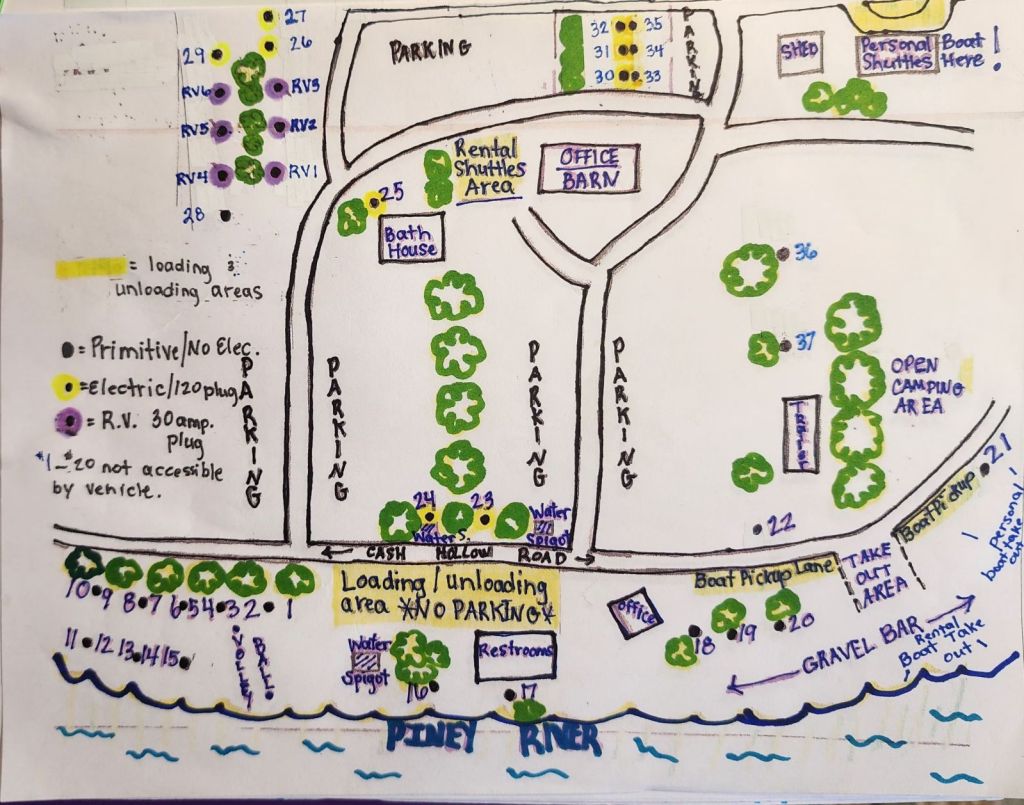 27
29
26
RV6
RV3
RV5
RV2
RV4
RV1
28
PARKING
32
35
31
34
30
33
PARKING
SHED
Personal
Shuttles
Boat
Here!
Rental
Shuttles
Area
OFFICE
BARN
25
Bath
House
= loading &
unloading areas
= Primitive/No Elec.
= Electric/120 plug
= R.V. 30 amp.
plug
#1-#20 not accessible
by vehicle.
PARKING
PARKING
PARKING
PARKING
36
37
OPEN
CAMPING
AREA
24
23
Water S.
Water
Spigot
22
21
Boat Pickup
Personal
boat take
out
← CASH HOLLOW ROAD →
Loading/unloading
area *NO PARKING*
Boat Pickup Lane
TAKE
OUT
AREA
10 9 8 7 6 5 4 3 2 1
11 12 13 14 15
VOLLEY
BALL
Water
Spigot
16
Restrooms
17
Office
18
19
20
GRAVEL BAR
Rental
Boat Take
out!
PINEY RIVER